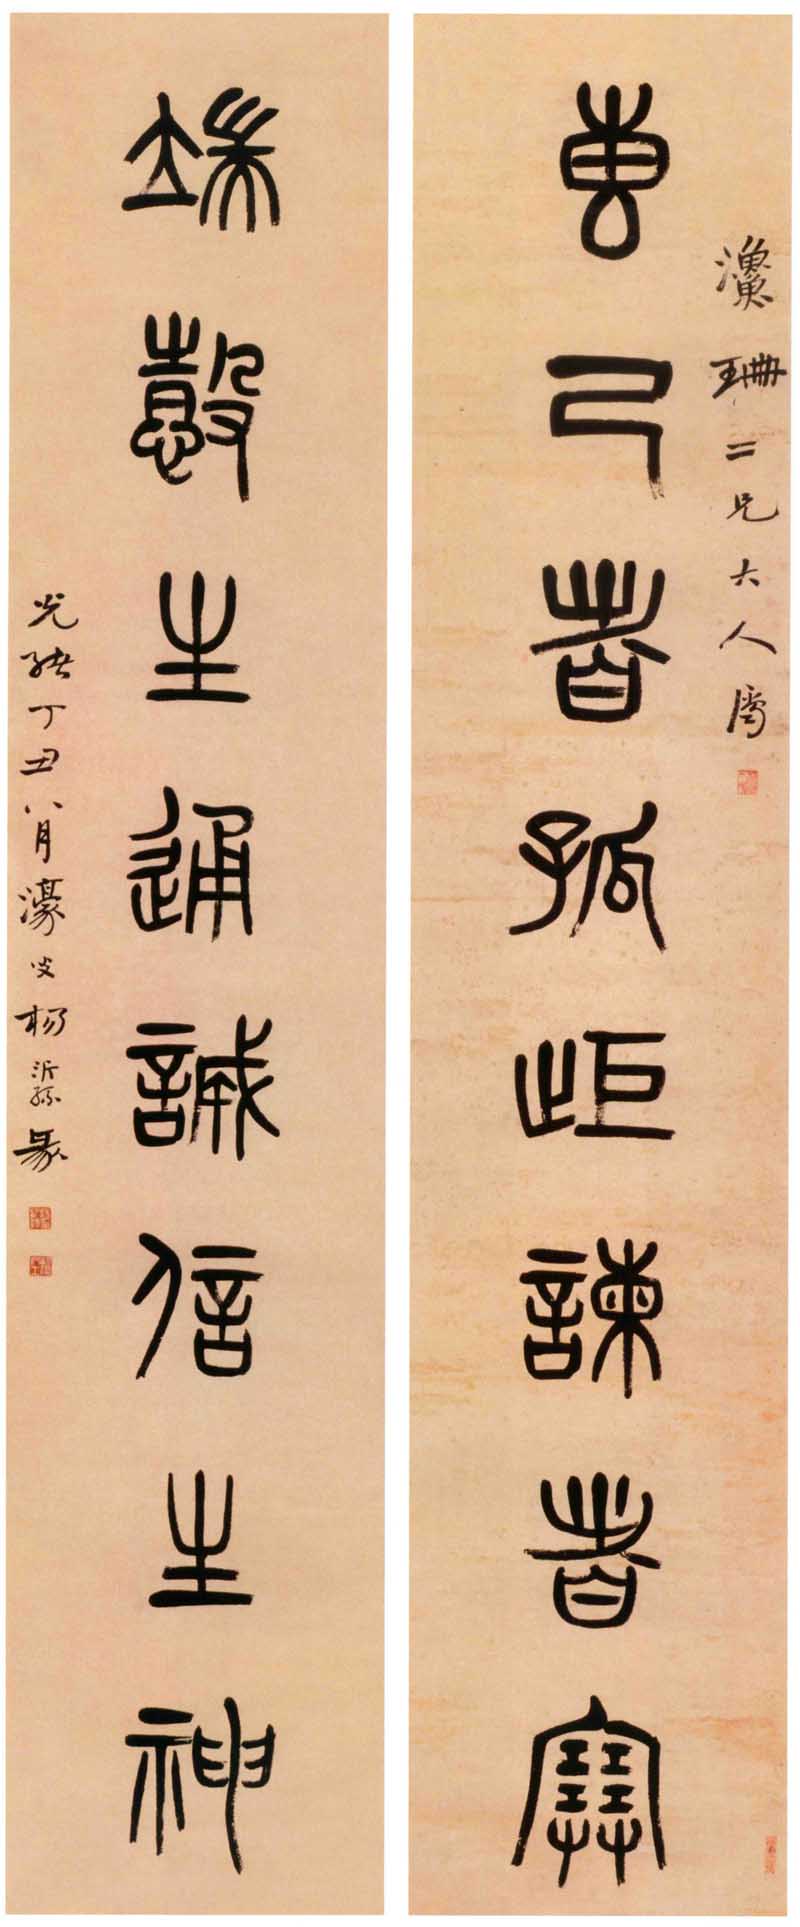 漁珊二兄大人属
叀己者孤歫諫者塞
端愨生通誠信生神
光緒丁丑八月濠叟楊沂孫篆